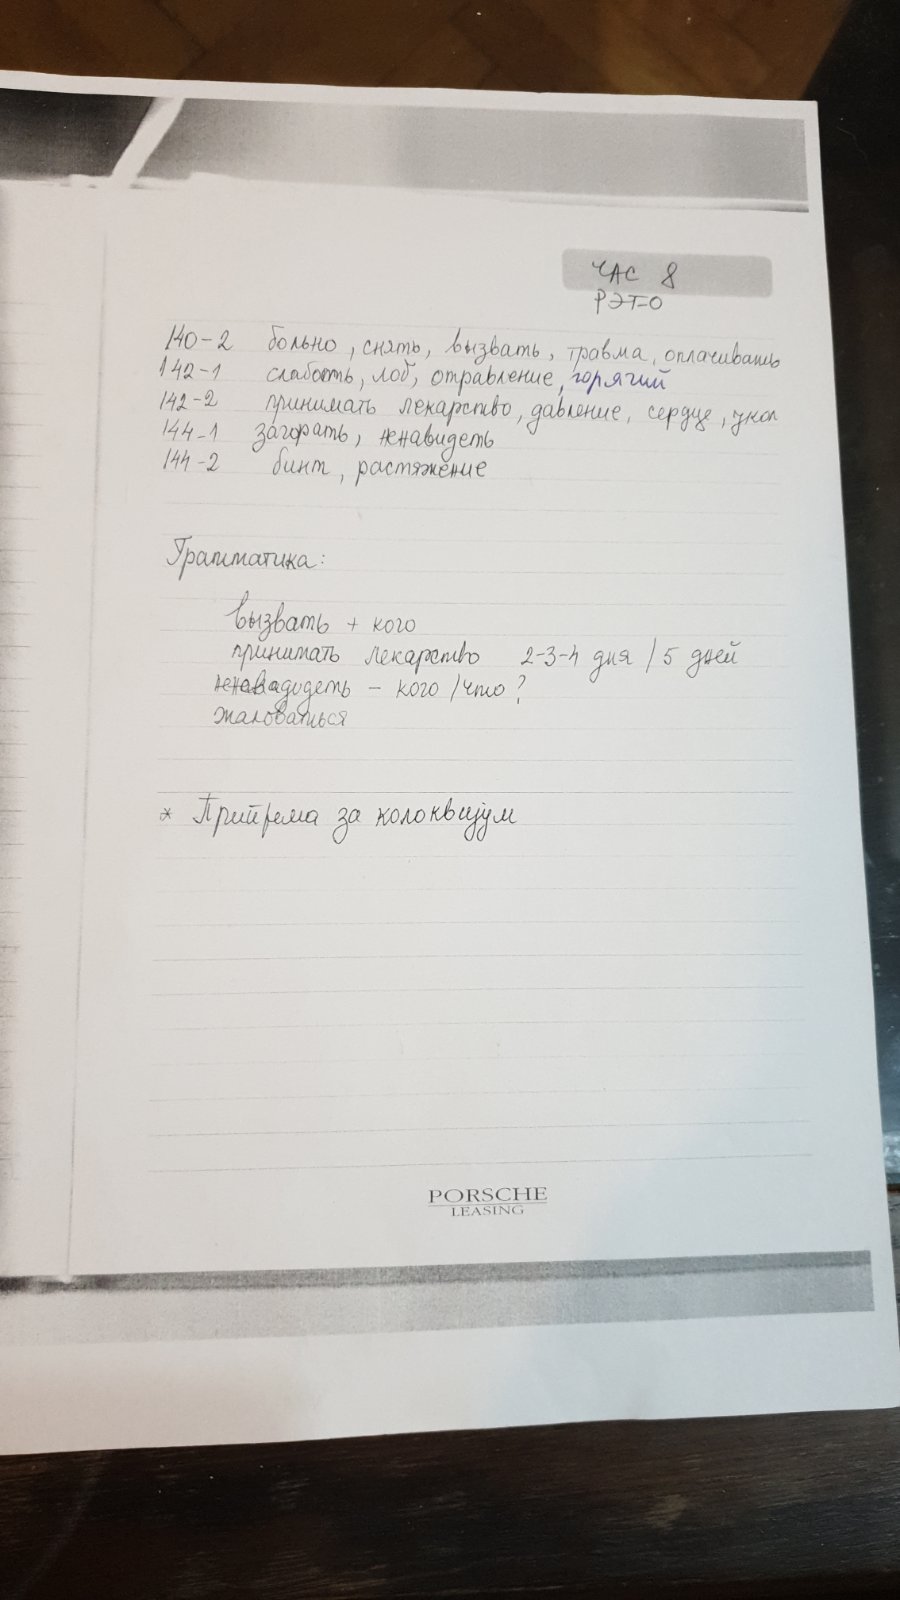 ЧАС 8
РЭТ-0
140-2 больно, снять, вызвать, травма, оплачивать
142-1 слабость, лоб, отравление, горячий
142-2 принимать лекарство, давление, сердце, укол
144-1 загорать, ненавидеть
144-2 бинт, растяжение
Грамматика:
вызвать + кого
принимать лекарство 2-3-4 дня / 5 дней
- кого / что?
жаловаться
* Припрема за колоквијум
PORSCHE
LEASING